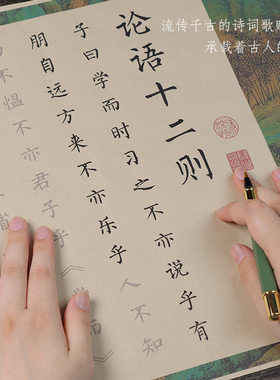 流传千古的诗词歌
承载着古人的
论语十二则
子曰学而时习之不亦说乎有
朋自远方来不亦乐乎人不知
不愠不亦君子乎